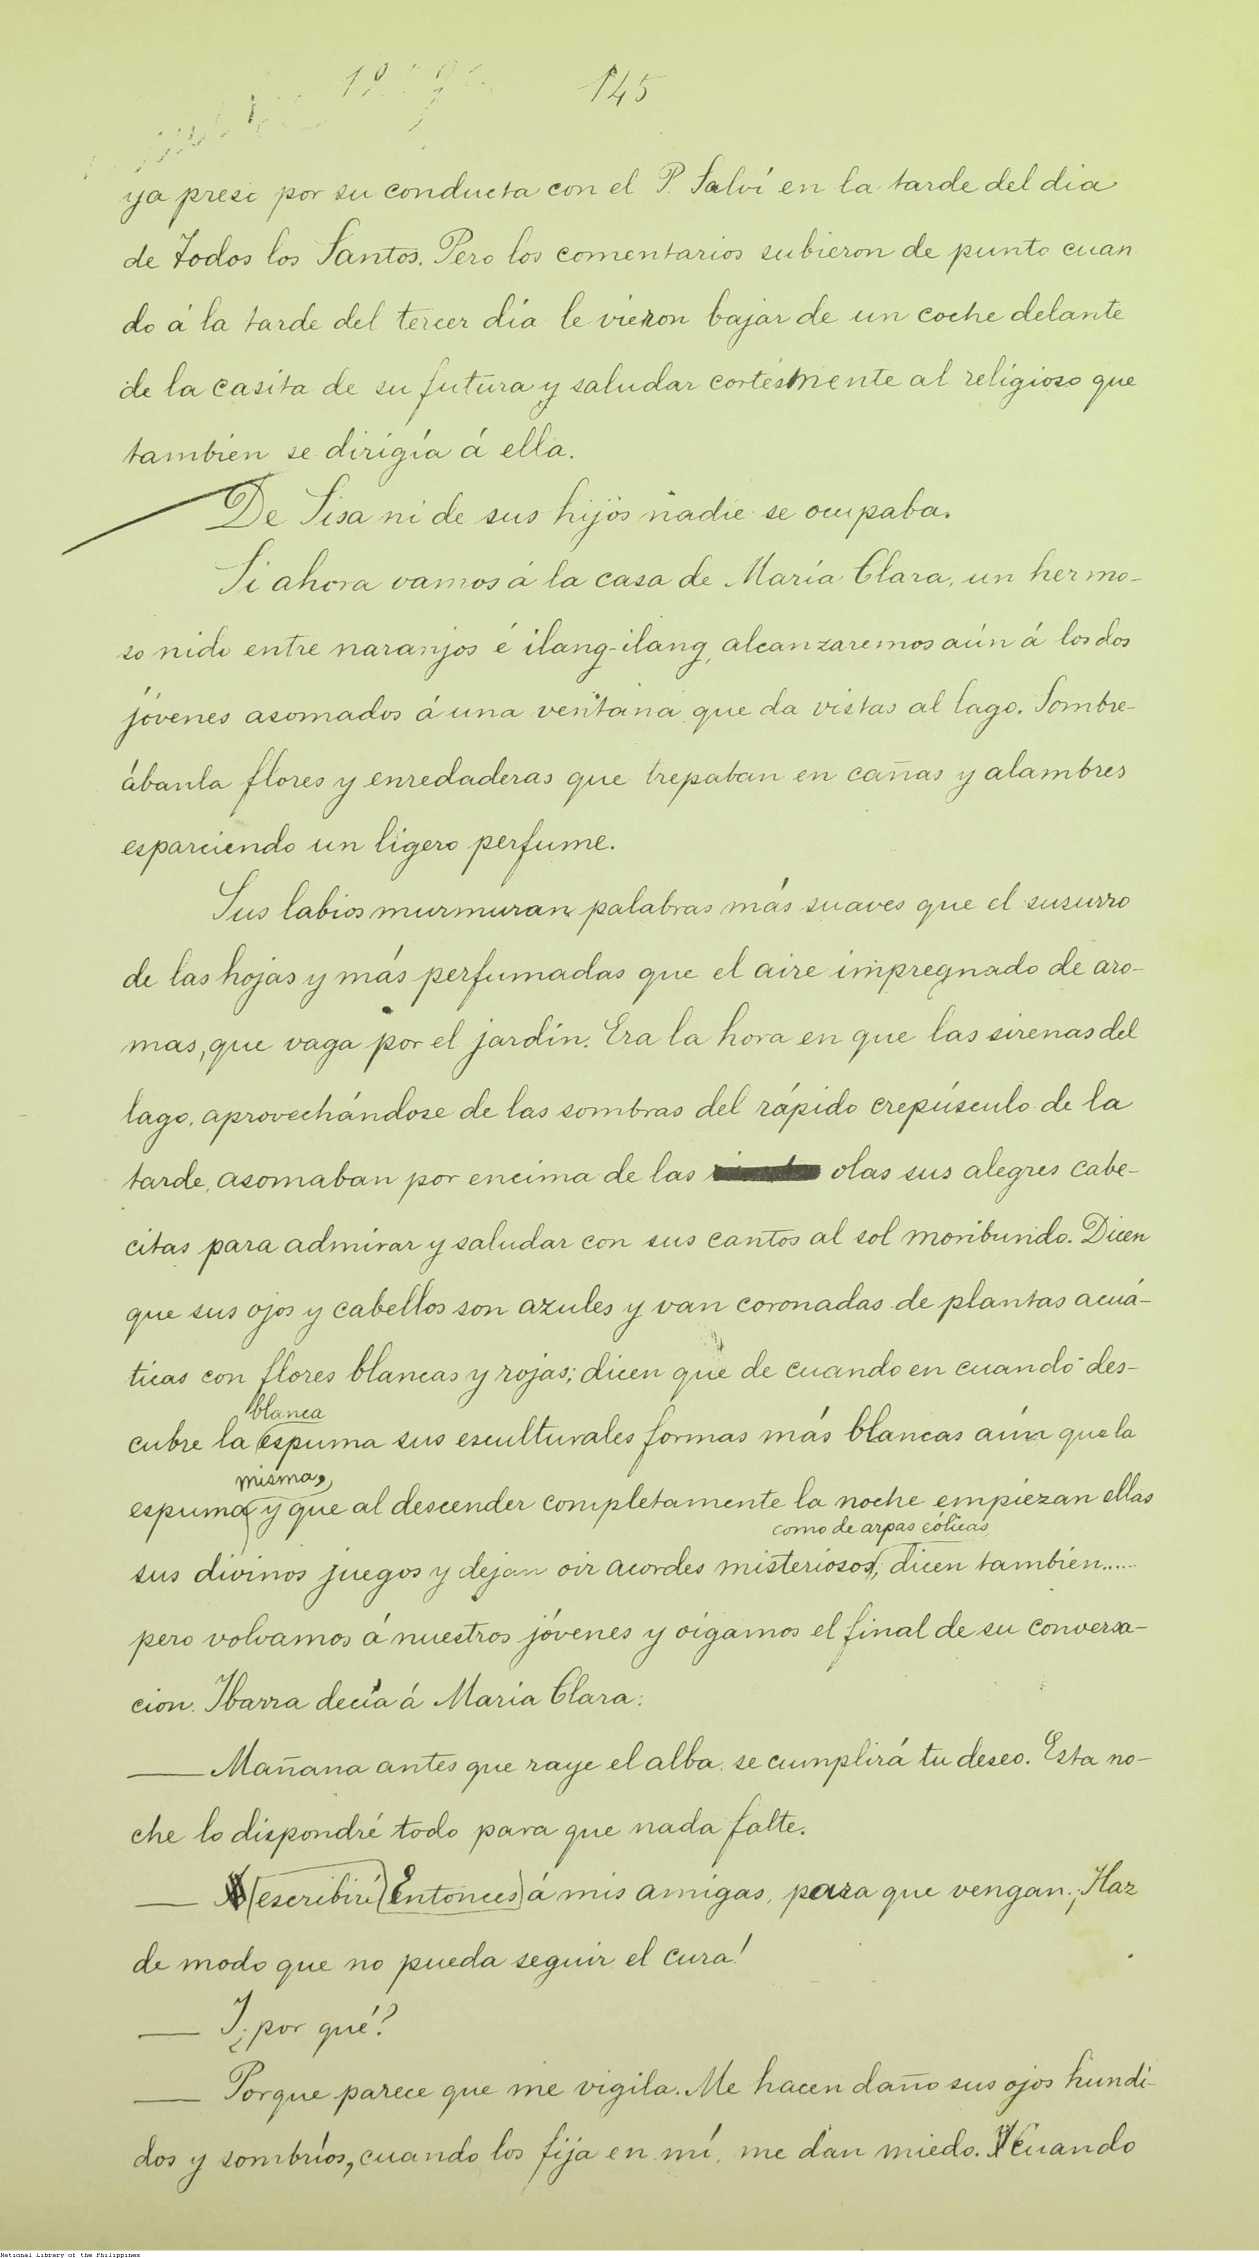 145
ya preso por su conducta con el P. Salví en la tarde del dia
de Todos los Santos. Pero los comentarios subieron de punto cuan
do á la tarde del tercer día le vieron bajar de un coche delante
de la casita de su futura y saludar cortésmente al religioso que
tambien se dirigía á ella.
De Sisa ni de sus hijos nadie se ocupaba.
Si ahora vamos á la casa de María Clara, un hermo-
so nido entre naranjos é ilang-ilang, alcanzaremos aún á los dos
jóvenes asomados á una ventana que da vistas al lago. Sombre-
ábanla flores y enredaderas que trepaban en cañas y alambres
esparciendo un ligero perfume.
Sus labios murmuran palabras más suaves que el susurro
de las hojas y más perfumadas que el aire impregnado de aro-
mas, que vaga por el jardín. Era la hora en que las sirenas del
lago, aprovechándose de las sombras del rápido crepúsculo de la
tarde, asomaban por encima de las olas sus alegres cabe-
citas para admirar y saludar con sus cantos al sol moribundo. Dicen
que sus ojos y cabellos son azules y van coronadas de plantas acuá-
ticas con flores blancas y rojas; dicen que de cuando en cuando des-
blanca
cubre la espuma sus esculturales formas más blancas aún que la
misma,
espuma y que al descender completamente la noche empiezan ellas
como de arpas eólicas
sus divinos juegos y dejan oir acordes misteriosos, dicen tambien.....
pero volvamos á nuestros jóvenes y oigamos el final de su conversa-
cion. Ibarra decía á María Clara:
— Mañana antes que raye el alba, se cumplirá tu deseo. Esta no-
che lo dispondré todo para que nada falte.
— (escribiré) (Entonces) á mis amigas, para que vengan. ¡Haz
de modo que no pueda seguir el cura!
— Y ¿por qué?
— Porque parece que me vigila. Me hacen daño sus ojos hundi-
dos y sombríos, cuando los fija en mí, me dan miedo. Cuando
National Library of the Philippines